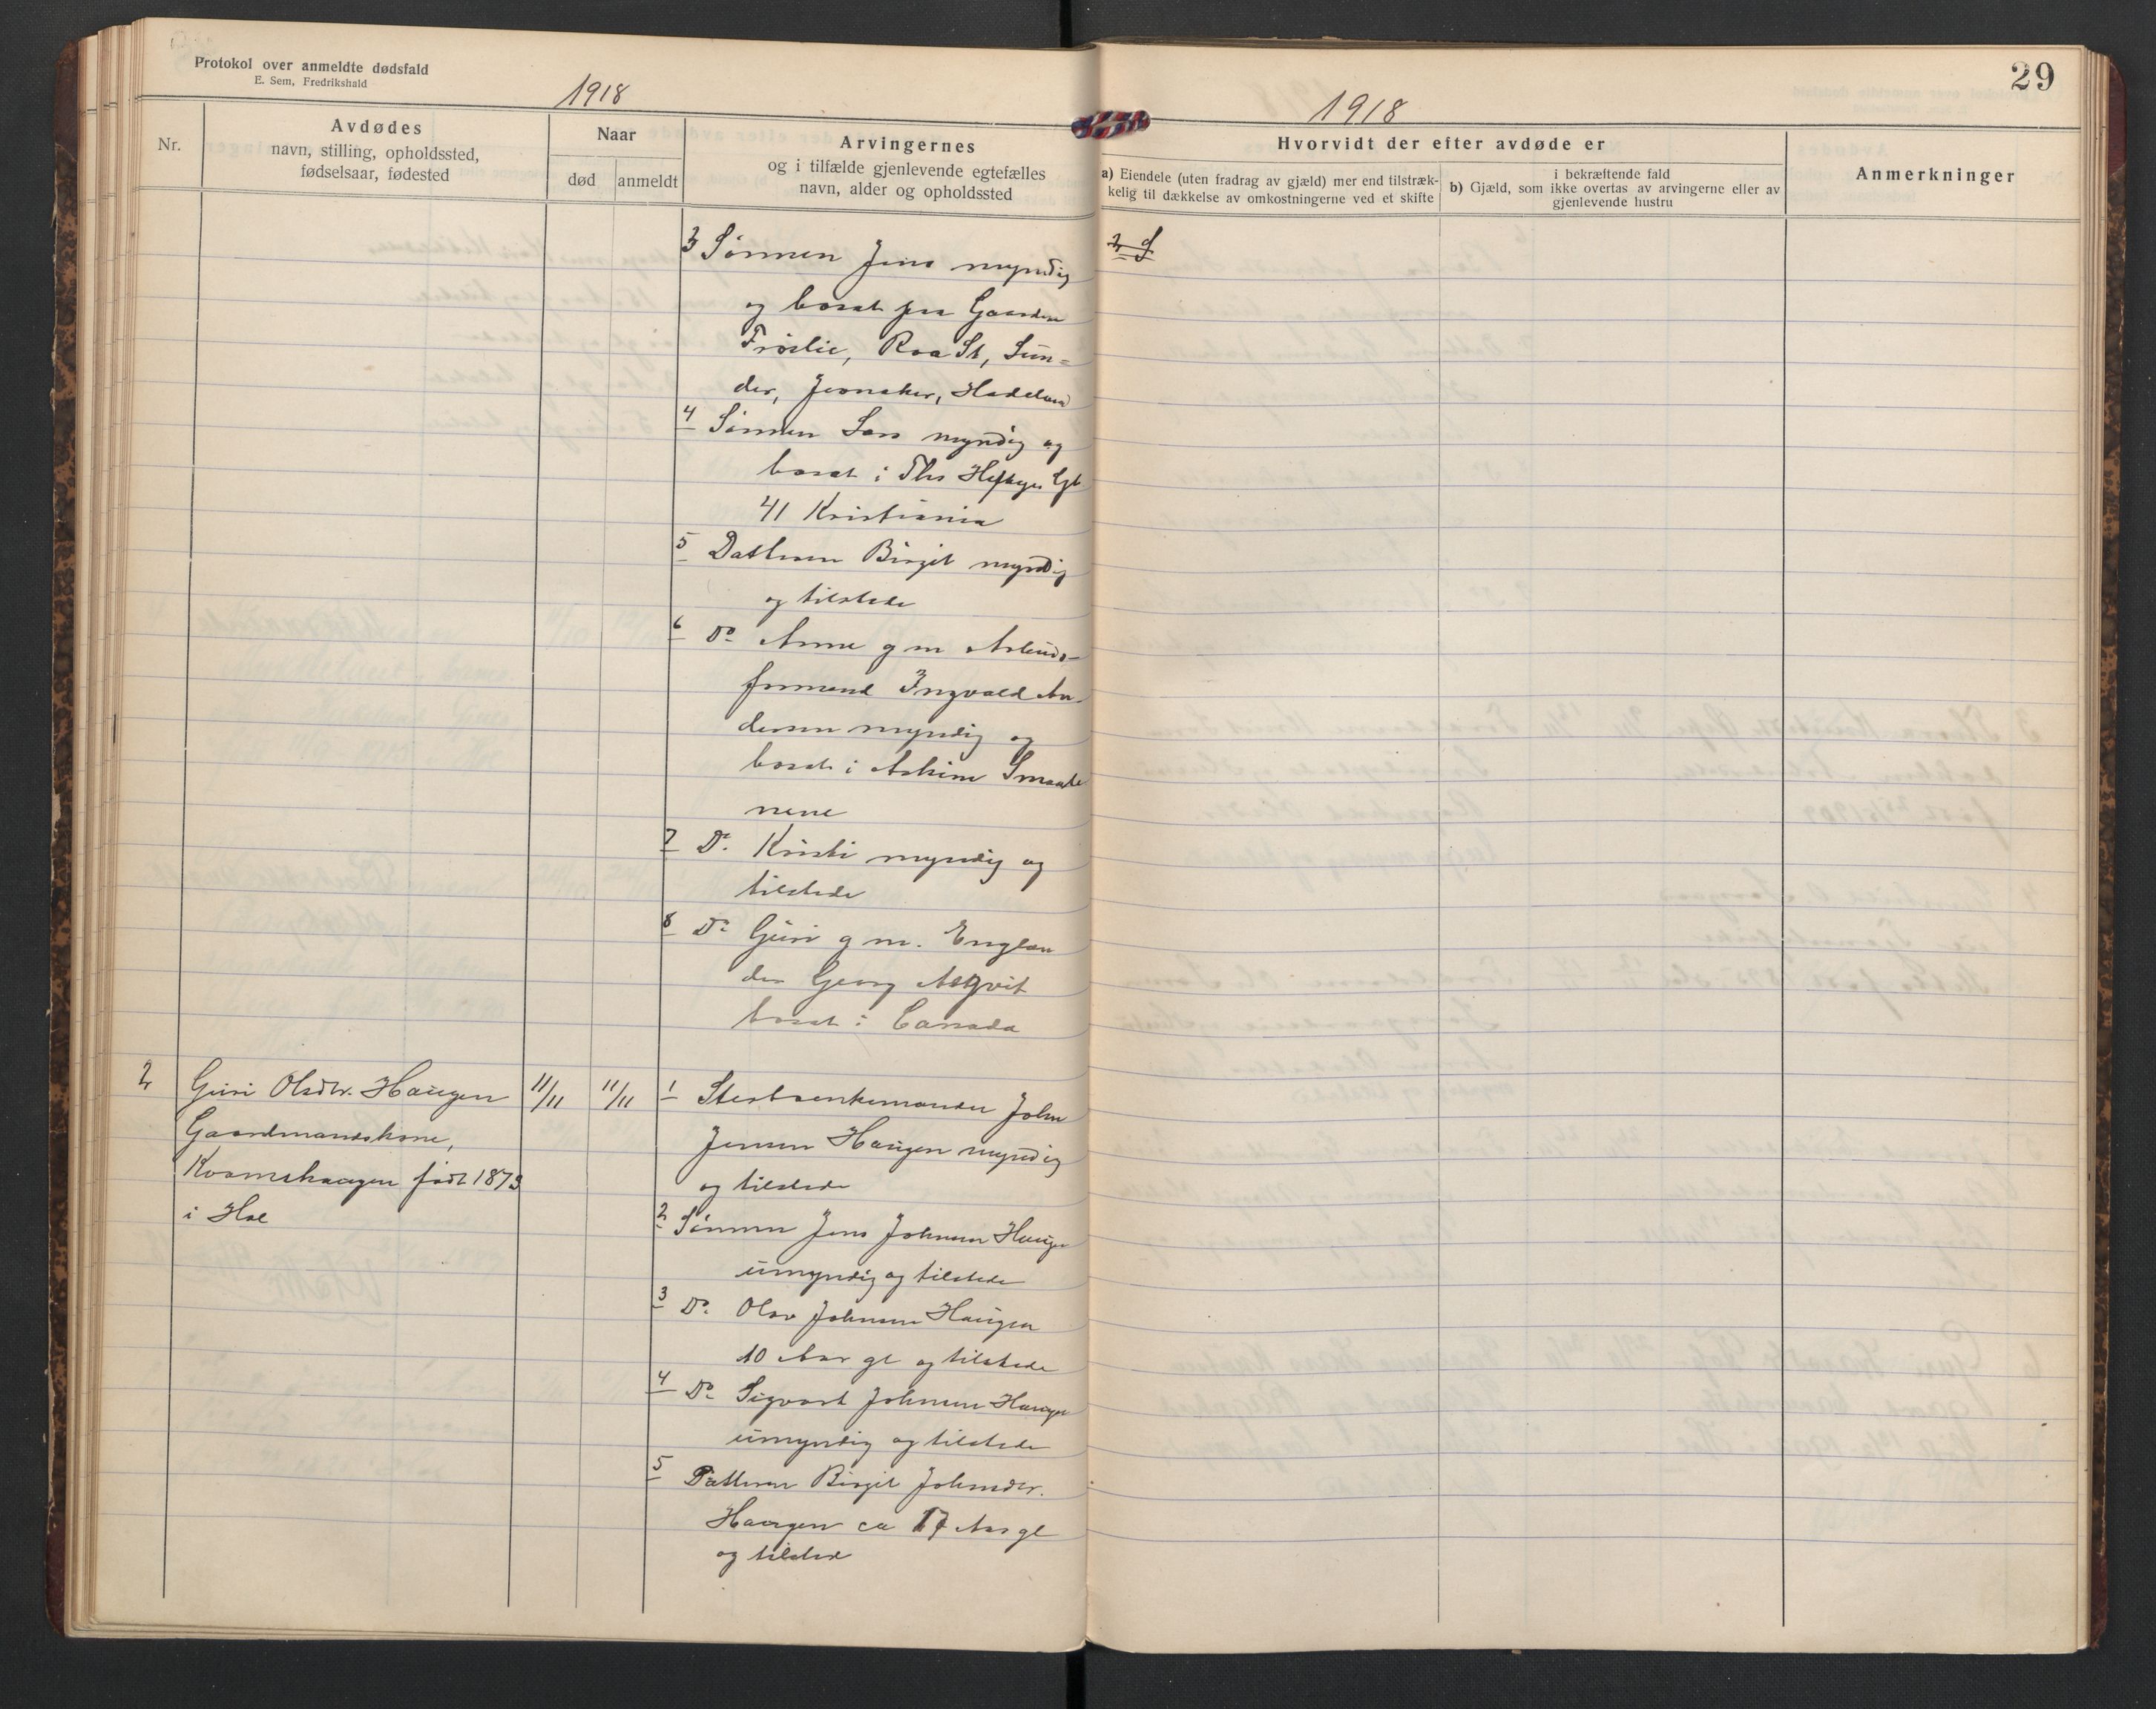 Protokol over anmeldte dødsfald
E. Sem, Fredrikshald
1918
Nr.
Avdødes
navn, stilling, opholdssted,
fødselsaar, fødested
Naar
død
anmeldt
Arvingernes
og i tilfælde gjenlevende egtefælles
navn, alder og opholdssted
3 Sønnen Jens myndig
og bosat paa Gaarden
Frøslie, Roa St, Lun=
der, Jevnaker, Hadeland
4 Sønnen Lars myndig og
bosat i Ths Heftyes Gt
41 Kristiania
5 Datteren Birgit myndig
og tilstede
6 Do Anne g m Arbeids-
formand Ingvald An-
dersen myndig og
bosat i Askim Smaale
nene
7 Do. Kristi myndig og
tilstede
8 Do Guri g m. Englæn
der Georg Asqvit
bosat i Canada
2 Guri Olsdtr. Haugen
Gaardmandskone,
født 1873
i Hol
11/11 11/11
1 Sterboenkemanden John
Jensen Haugen myndig
og tilstede
2 Sønnen Jens Johnsen Haugen
umyndig og tilstede
3 Do. Olav Johnsen Haugen
10 Aar gl og tilstede
4 Do Sigvart Johnsen Haugen
umyndig og tilstede
5 Datteren Birgit Johnsdtr.
Haugen ca 17 Aar gl
og tilstede
29
1918
Hvorvidt der efter avdøde er
a) Eiendele (uten fradrag av gjæld) mer end tilstræk-
kelig til dækkelse av omkostningerne ved et skifte
i bekræftende fald
b) Gjæld, som ikke overtas av arvingerne eller av
gjenlevende hustru
Anmerkninger